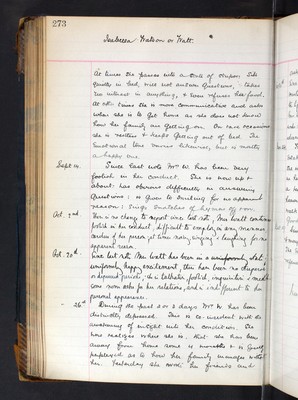 273
Isabella Watson or Watt.
At times she passes into a state of stupor. She
speaks in bed, will not answer questions, takes
no interest in anything, & even refuses her food.
At other times she is more communicative and asks
when she is to get home as she does not know
how her family are getting on. On rare occasions
she is restless & keeps getting out of bed. The
emotional tone varies likewise, but is mostly
a happy one.
Sept. 14. Since last note Mrs W. has been very
foolish in her conduct. She is now up &
about: has obvious difficulty in answering
questions: is given to smiling for no apparent
reason: sings snatches of hymns off &c.
Oct. 2nd There is no change to report since last note. Mrs Watt continues
foolish in her conduct, difficult to employ, in any manner
careless of her person, at times noisy, singing & laughing for no
apparent reason.
Oct. 20th. Since last note Mrs Watt has been in a uniformly
uniformly happy excitement, then has been a
period: she is apathetic, foolish,
some for her relations, and is indifferent to her
personal appearance.
- 26th During the past 2 or 3 days Mrs W. has been
distinctly depressed. This is co-incident with the
awakening of insight into her condition. She
now realises where she is, that she has been
away from home some months & is greatly
perplexed as to how her family manages without
her. Yesterday she saw her friends and